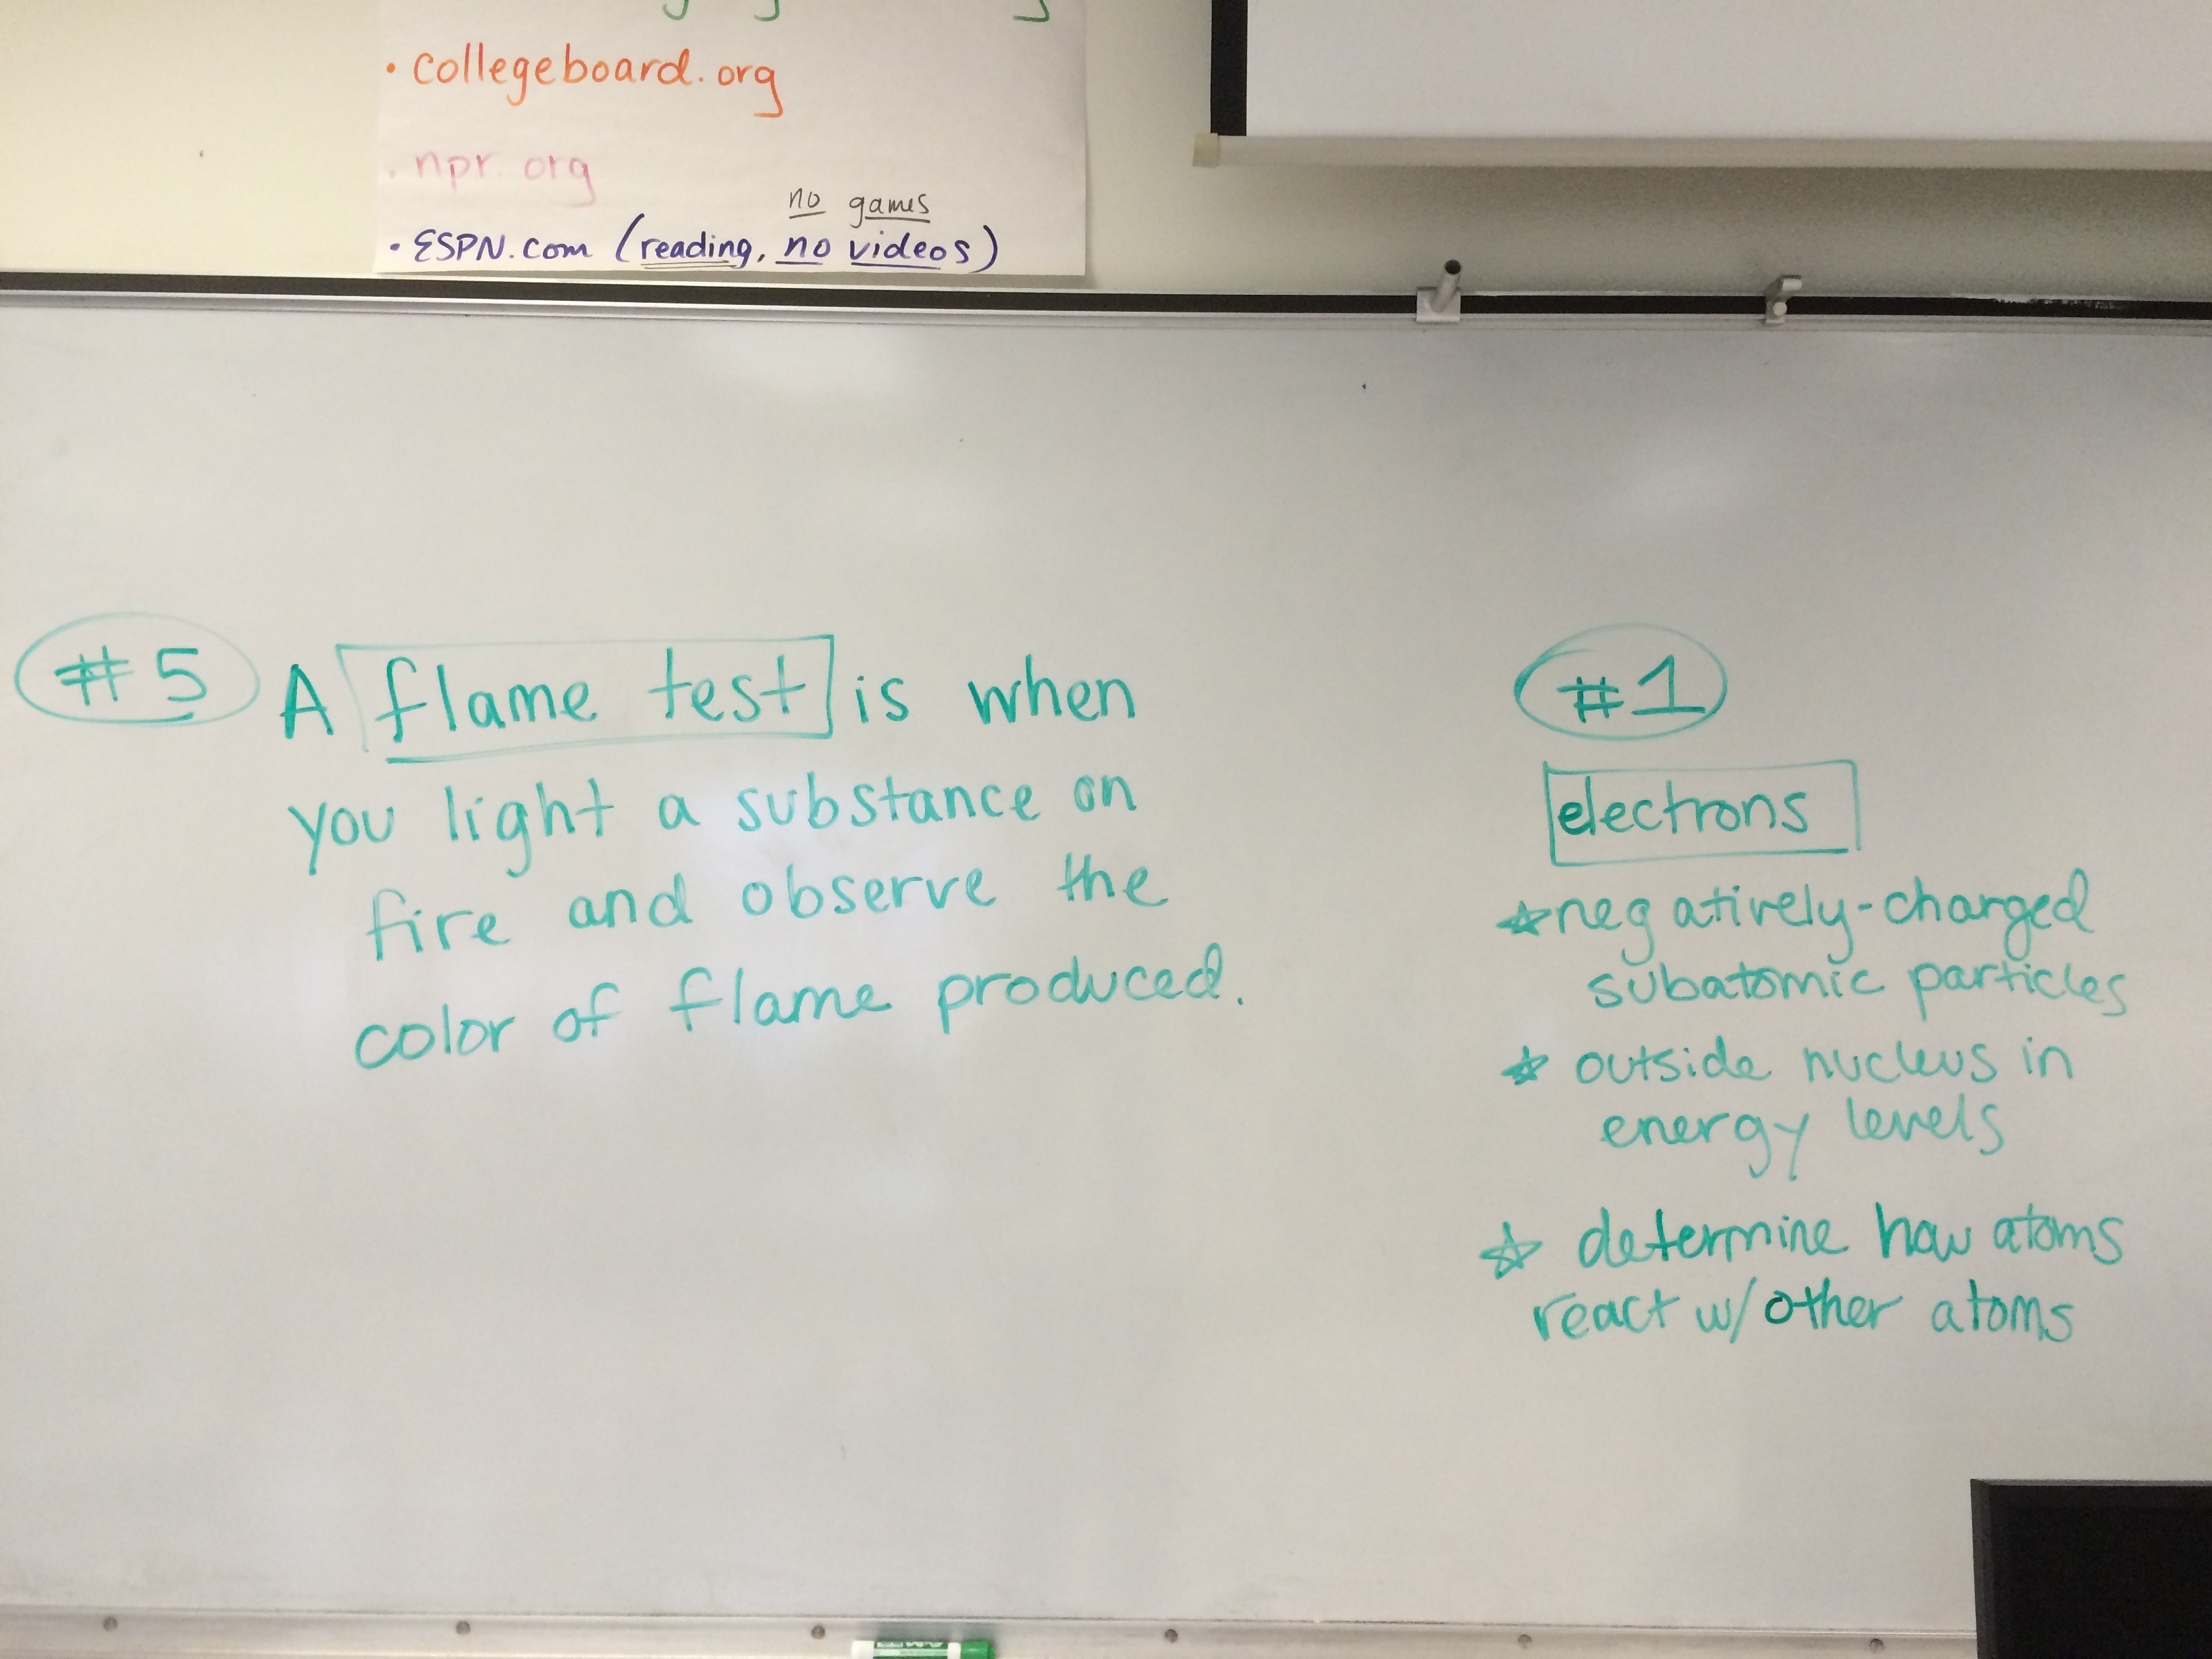 • collegeboard.org
• npr.org
no games
• ESPN.com (reading, no videos)
#5 A flame test is when
you light a substance on
fire and observe the
color of flame produced.
#1
electrons
☆ negatively-charged
subatomic particles
☆ outside nucleus in
energy levels
☆ determine how atoms
react w/other atoms